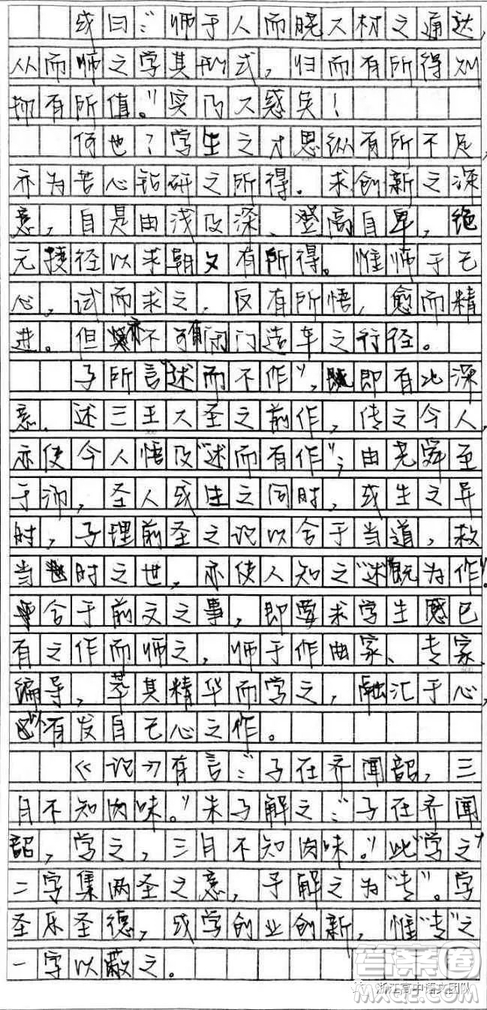 或曰：“师于人而晓大材之通达，
从而师之学其形式，归而有所得则
抑有所值。”实乃大惑矣！
何也？学生之才思纵有所不足，
亦为苦心钻研之所得。求创新之深
意，自是由浅及深、登高自卑，绝
无捷径以求朝夕有所得。惟师于己
心，试而求之，反有所悟，愈而精
进。但亦不可有闭门造车之行径。
子所言“述而不作”，即有此深
意。述三王大圣之前作，传之今人，
亦使今人悟及“述而有作”；由尧舜至
于沛，圣人或生之同时，或生之异
时，子理前圣之论以合于当道，教
当时之世，亦使人知之“述既为作”。
合于前文之事，即要求学生感已
有之作而师之，师于作曲家、专家、
编导，萃其精华而学之，融汇于心，
有发自己心之作。
《论》有言：“子在齐闻韶，三
月不知肉味。”朱子解之：“子在齐闻
韶，学之，三月不知肉味。”此“学之”
二字集两圣之意，予解之为“专”。学
圣乐圣德，或学创业创新，惟“专”之
一字以蔽之。
答案圈
浙江高中语文团队
MXQE.COM